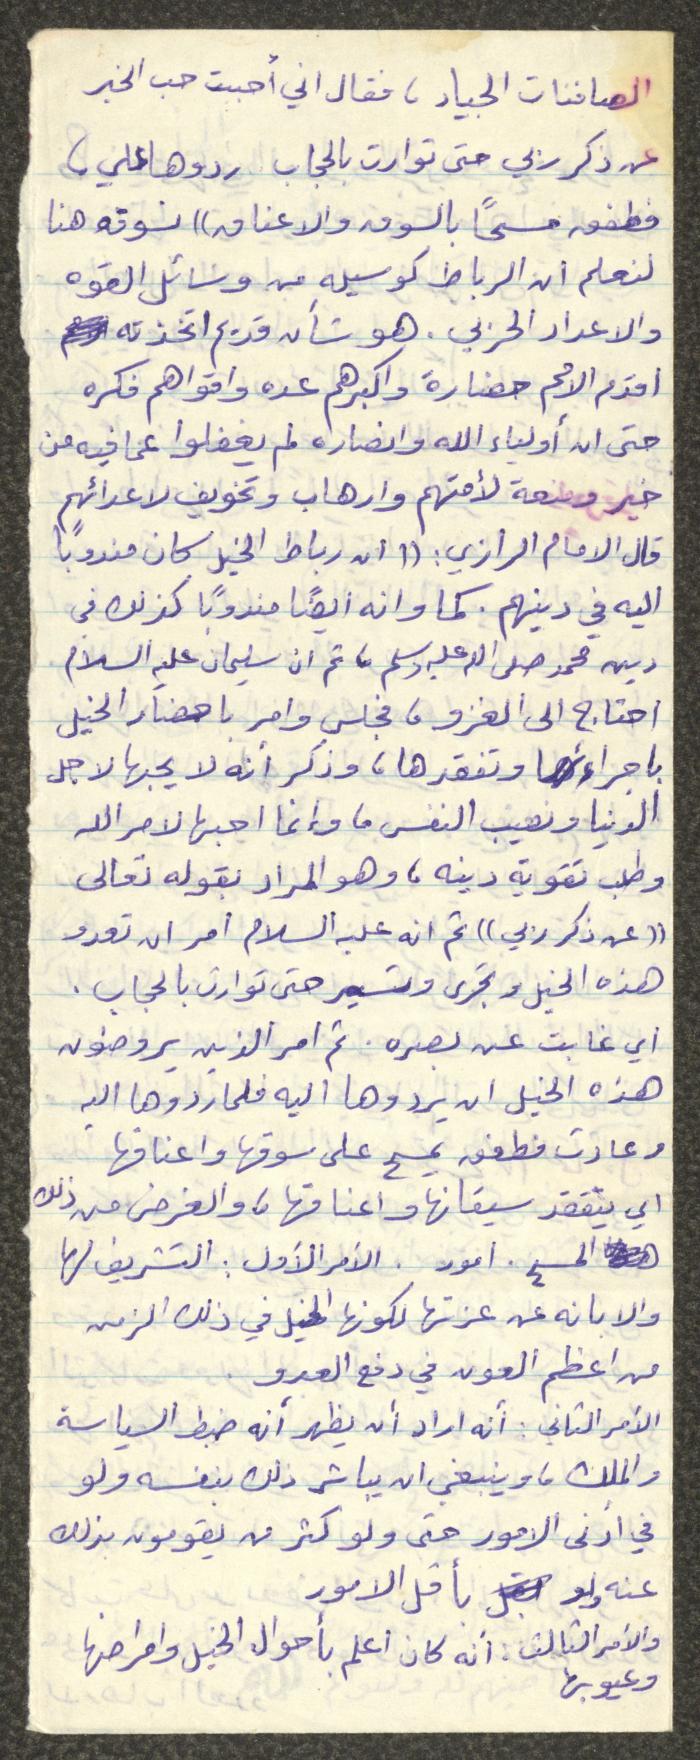 الصافنات الجياد، فقال اني أحببت حب الخير
عن ذكر ربي حتى توارت بالحجاب ردوها علي
فطفق مسحًا بالسوق والاعناق)) نسوقه هنا
لنعلم أن الرباط كوسيله من وسائل القوه
والاعداد الحربي. هو شأن قديم اتخذته
أقدم الأمم حضارة واكبرهم عده واقواهم فكره
حتى ان أولياء الله وانصاره لم يغفلوا عما فيه من
خير ومنعة لأمتهم وارهاب وتخويف لاعدائهم
قال الامام الرازي: ((ان رباط الخيل كان مندوبًا
اليه في دينهم. كما وانه ايضًا مندوبًا كذلك في
دين محمد صلى الله عليه وسلم، ثم ان سليمان عليه السلام
احتاج الى الغزو، فجلس وامر باحضار الخيل
باجراءها وتفقدها، وذكر أنه لا يحبها لاجل
الدنيا ونصيب النفس، وإنما احبها لامر الله
وطلب تقوية دينه، وهو المراد بقوله تعالى
((عن ذكر ربي)) ثم انه عليه السلام أمر ان تعدو
هذه الخيل وتجرى وتسير حتى توارت بالحجاب.
اي غابت عن بصره. ثم امر الذين يروضون
هذه الخيل ان يردوها اليه فلما ردوها اليه
وعادت فطفق يمسح على سوقها واعناقها
اي يتفقد سيقانها واعناقها، والغرض من ذلك
المسح. امور. الأمر الأول: التشريف لها
والابانه عن عزتها لكونها الخيل في ذلك الزمن
من اعظم العون في دفع العدو.
الأمر الثاني: أنه اراد أن يظهر أنه ضبط السياسة
والملك، وينبغي ان يباشر ذلك بنفسه ولو
في أدنى الامور حتى ولو كثر من يقومون بذلك
عنه ولو بأقل الامور
والأمر الثالث: أنه كان أعلم بأحوال الخيل وامراضها
وعيوبها